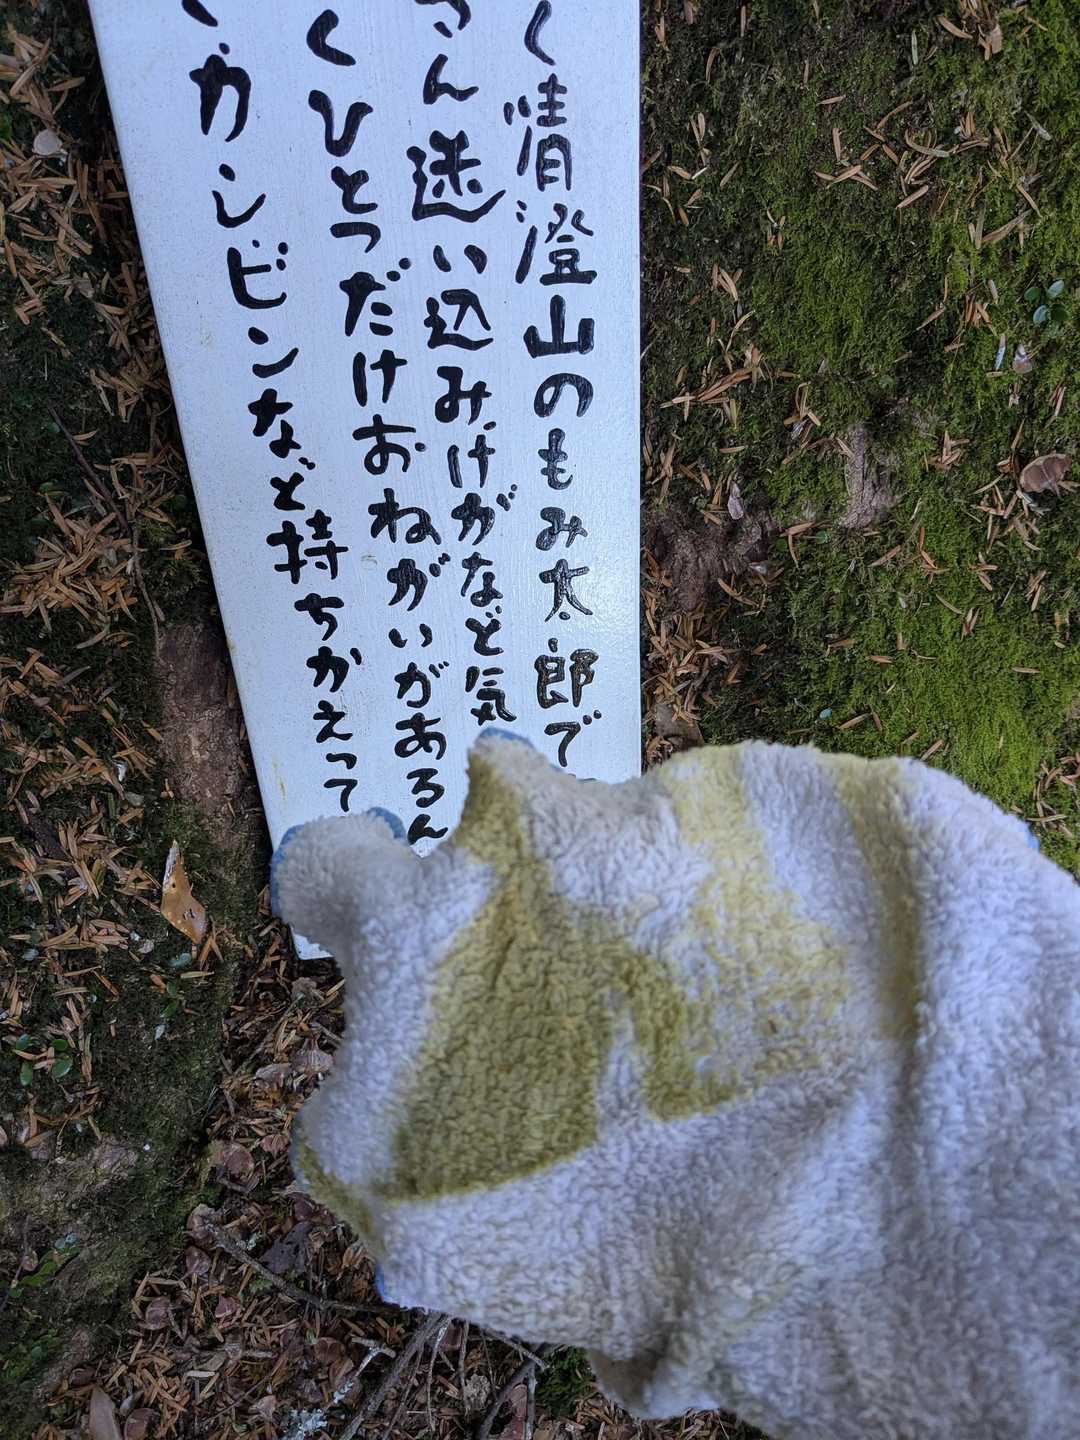 く情澄山のもみ太郎で
さん迷い込みけがなど気
くひとつだけおねがいがあるん
カンビンなど持ちかえって